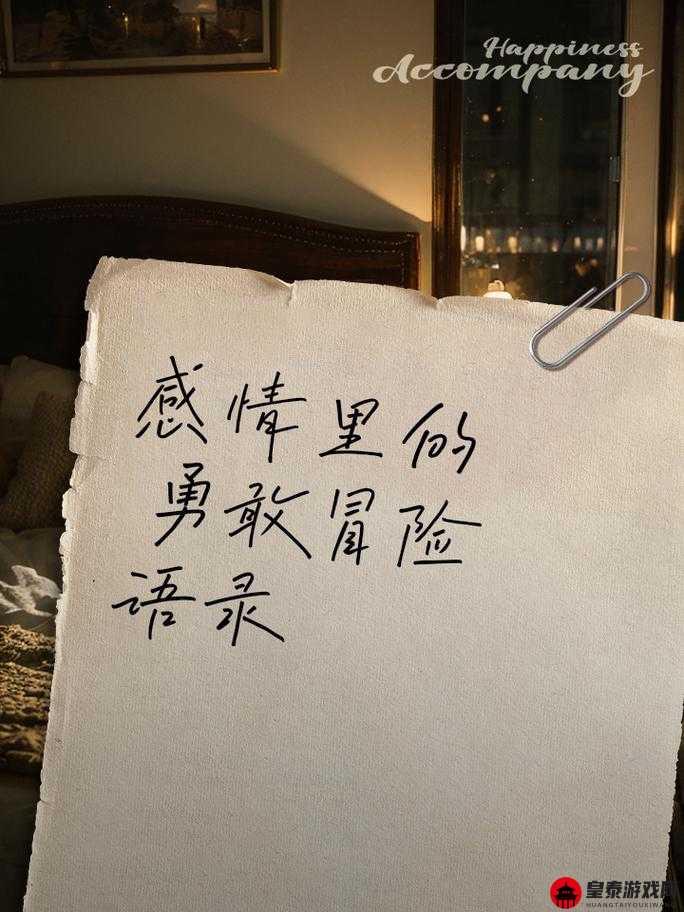 Happiness
Accompany
感情里的
勇敢冒险
语录
皇泰游戏
HUANGTAIYOUXIWA